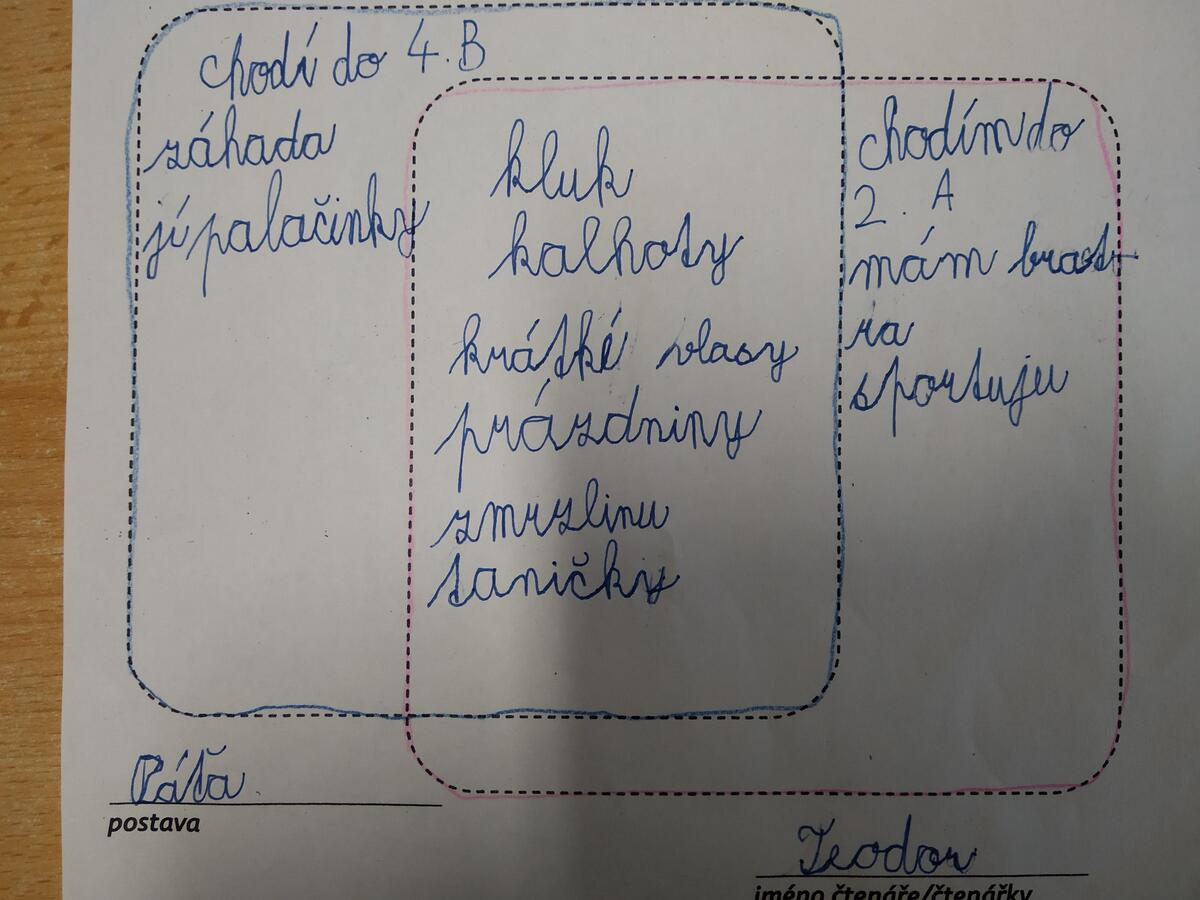 chodí do 4. B
záhada
jí palačinky
kluk
kalhoty
krátké vlasy
prázdniny
zmrzlinu
taničky
chodím do
2. A
mám brat-
ra
sportuju
Páťa
postava
Teodor
jméno čtenáře/čtenářky